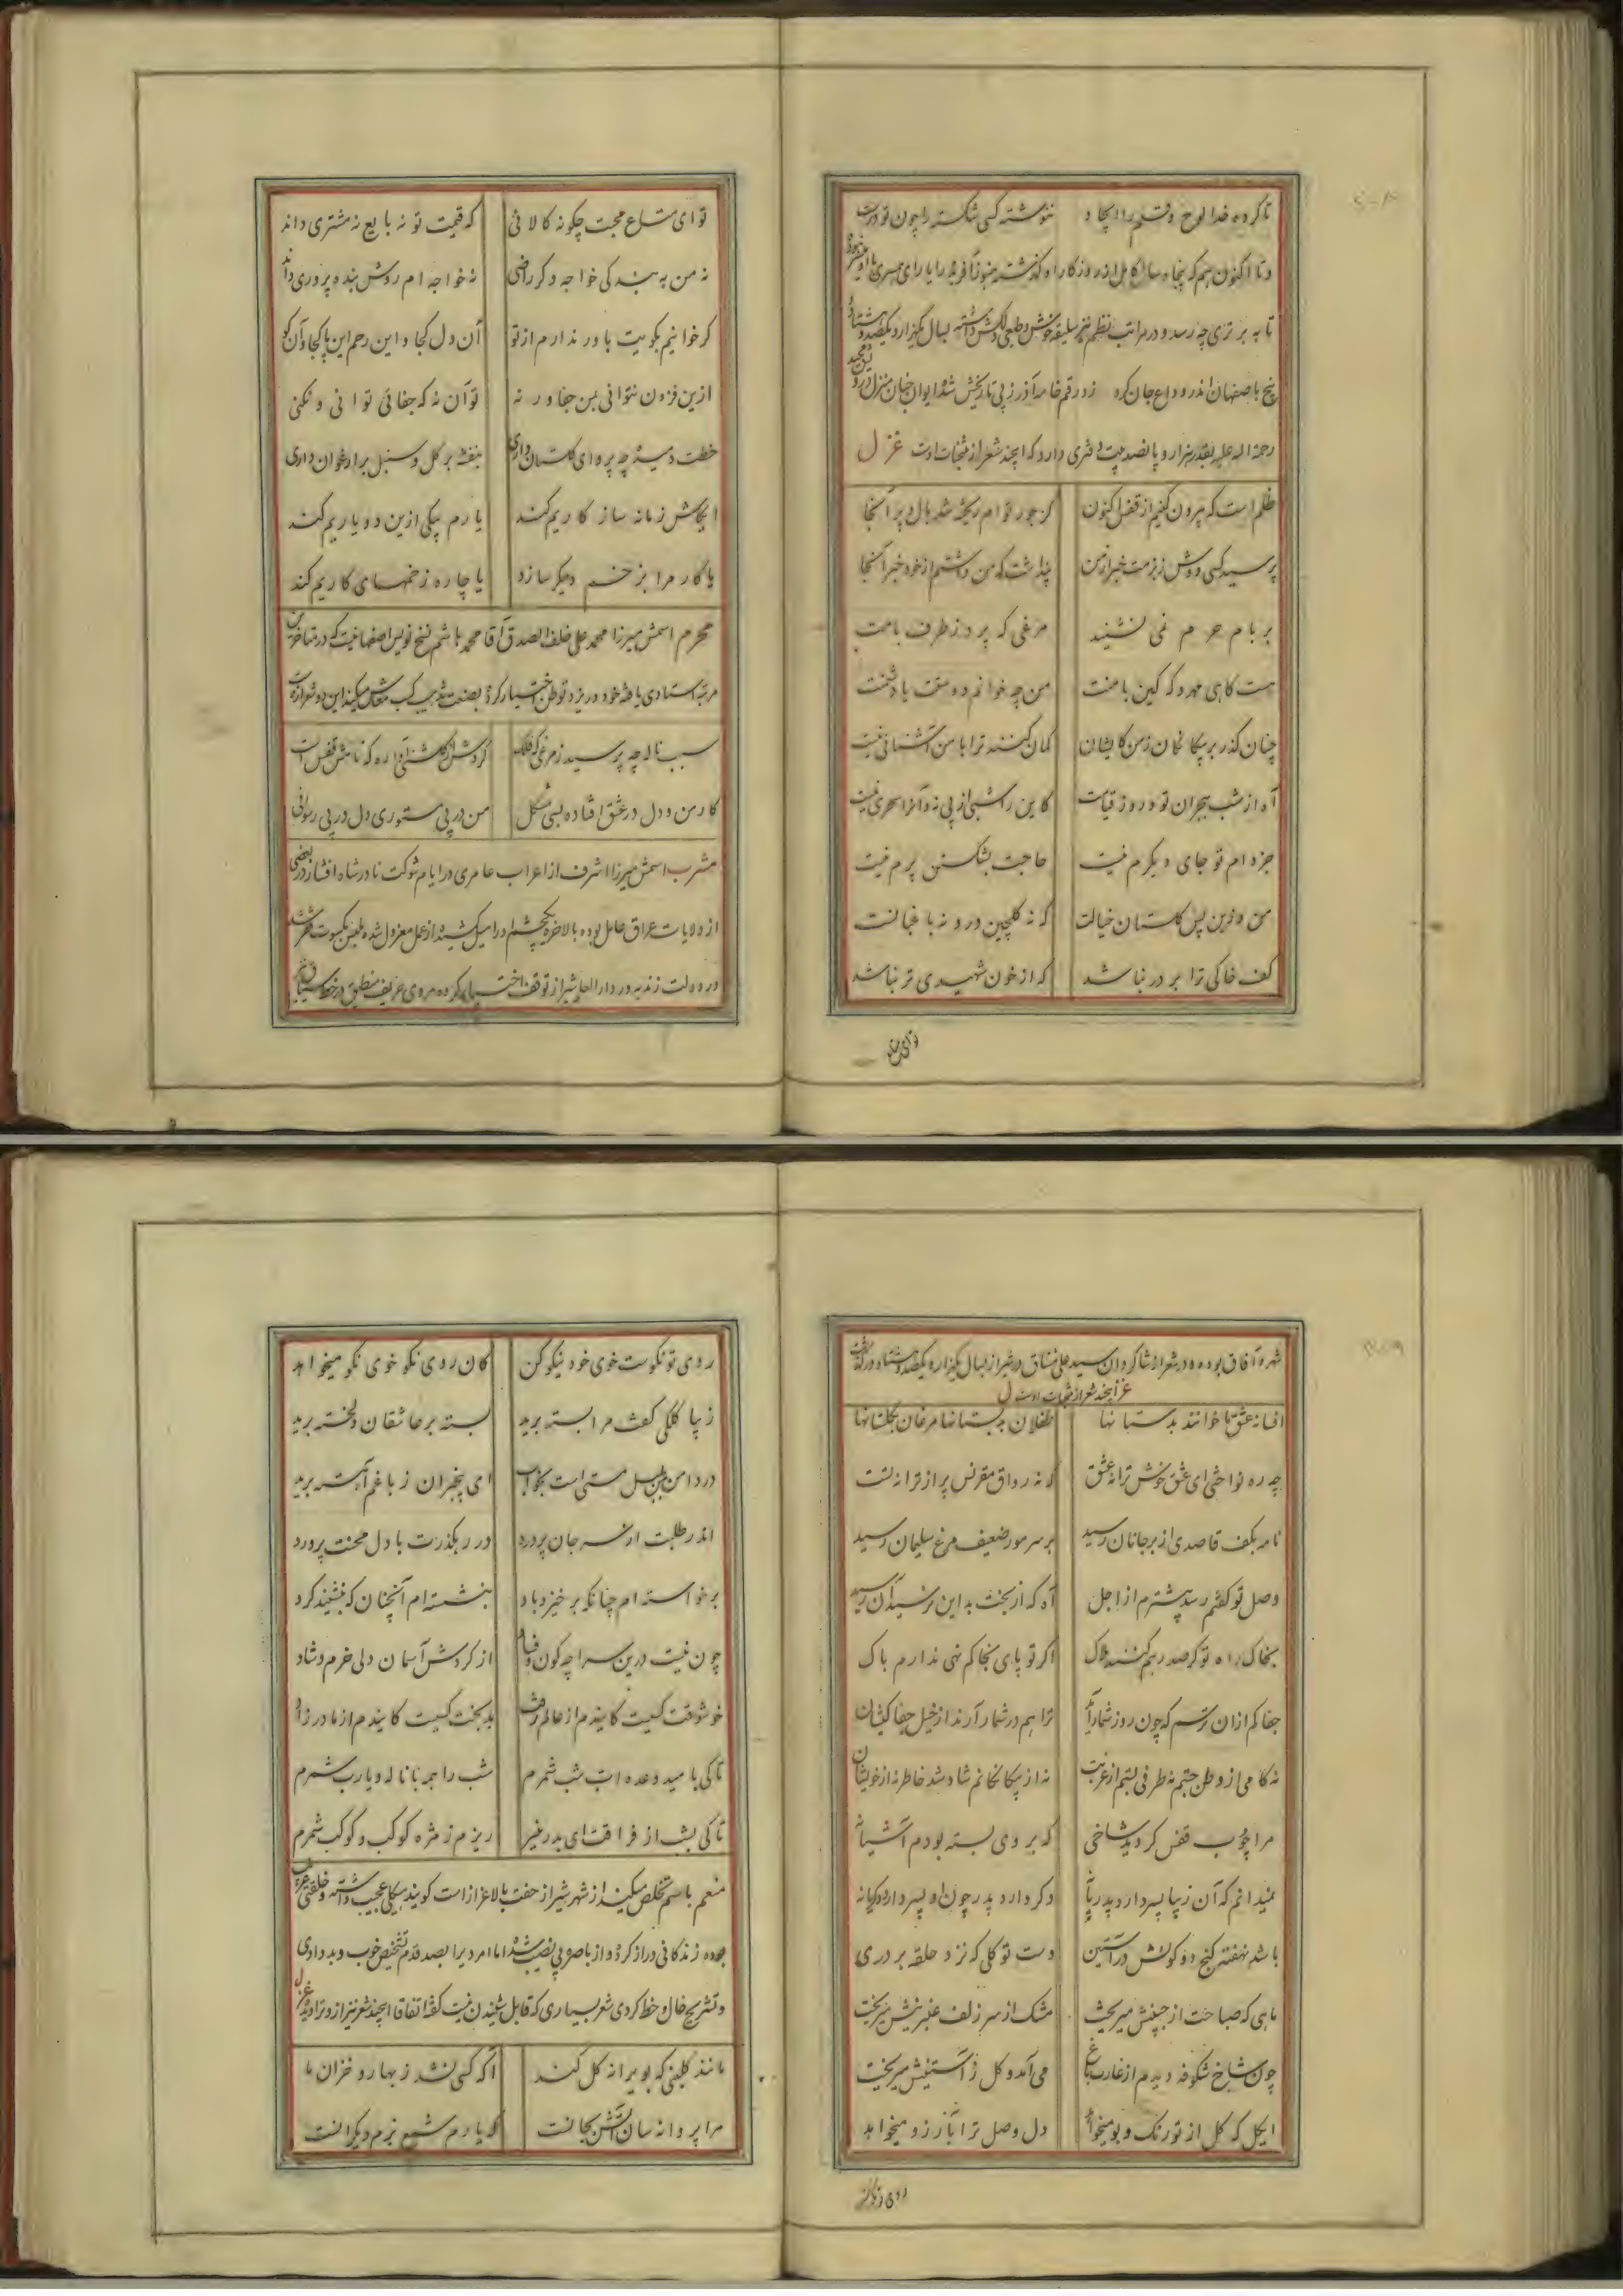 تا کرده خدا لوح و قلم را ایجاد ننوشته کسی شکسته را چون تو درست
و تا اکنون هم که پنجاه سال کامل از روزگار او گذشته هنوز آفریده را یارای همسری با او میسر نبوده
تا به برتری چه رسد و در مراتب نظم نیز سلیقه خوش و طبعی دلکش داشته بسال یکهزار و یکصد و هشتاد و
پنج باصفهان اندر وداع جان کرد زد رقم خامه آذر ز پی تاریخش شد ایوان جنان منزل درویش مجید
رحمة الله علیه بقدر هزار و پانصد بیت دفتری دارد که اینچند شعر از منتخبات اوست غزل
ظلم است که بیرون کنیم از قفس اکنون کز جور توام ریخته شد بال و پر آنجا
پرسید کسی دوش ز بزمت خبر از من پنداشت که من داشتم از خود خبر آنجا
بر بام حرم نمی نشیند مرغی که پرد ز طرف بامت
هست گاهی مهر و گه کین با منت من چه خوانم دوستت یا دشمنت
چنان گذر بر بیگانگان ز من کایشان گمان کنند ترا با من آشنائی نیست
آه از شب هجران تو و روز قیامت کاین را شبی از پی نه و آنرا سحری نیست
جز دام تو جای دیگرم نیست حاجت بشکستن پرم نیست
من و زین پس گلستان خیالت که نه گلچین درو نه باغبانست
کف خاکی ترا بر در نباشد که از خون شهیدی تر نباشد
تو ای متاع
تو ای متاع محبت چگونه کالائی که قیمت تو نه بایع نه مشتری داند
نه من به بندگی خواجه دگر راضی نه خواجه ام روش بنده پروری داند
گر خوانیم بکویت باور ندارم از تو آن دل کجا و این رحم این پا کجا و آن کو
ازین فزون نتوانی بمن جفا ور نه تو آن نه که جفائی توانی و نکنی
خطت دمیده چه پروای گلستان داری بنفشه بر گل و سنبل بر ارغوان داری
ایکاش زمانه سازگاریم کند یا رم بیکی ازین دو یاریم کند
یا کار مرا بزخم دیگر سازد یا چاره زخمهای کاریم کند
محرم اسمش میرزا محمد علی خلف الصدق آقا محمد هاشم نسخ نویس اصفهانیست که در متاخرین
مرتبه استادی یافته خود در یزد توطن اختیار کرده بصنعت تذهیب کسب معاش میکند این دو شعر ازوست
سبب ناله چه پرسید ز مرغی که فلک کردش از گلشنی آواره که نامش قفس است
کار من و دل در عشق افتاده بسی مشکل من در پی مستوری دل در پی رسوائی
مشرب اسمش میرزا اشرف از اعراب عامری در ایام شوکت نادرشاه افشار در بعضی
از ولایات عراق عامل بوده بالاخره یکچشم او را میل کشیده از عمل معزول شده ملبس بکسوت فقر شد
در دولت زندیه در دارالعلم شیراز توقف اختیار کرده مردی حریف منطیق در خط سیاق
شهره آفاق بوده و در شعر از شاگردان سید علی مشتاق در شیراز بسال یکهزار و یکصد و هشتاد در گذشت
اینچند شعر از منتخبات اوست غزل
افسانه عشق ما خوانند بدستانها طفلان بدبستانها مرغان بگلستانها
چه ره نواختی ای عشق خوش ترانه عشق که نه رواق مقرنس پر از ترانه تست
نامه بکف قاصدی از بر جانان رسید بر سر مور ضعیف مرغ سلیمان رسید
وصل تو گفتم رسد پیشترم از اجل آه که از بخت بد این نرسید آن رسید
بخاک راه تو گر صد رهم کنند هلاک اگر تو پای بخاکم نهی ندارم باک
جفاکم ازان ترسم که چون روز شمار آید ترا هم در شمار آرند از خیل جفا کیشان
نه کامی از وطن جستم نه طرفی بستم از غربت نه از بیگانگانم شاد شد خاطر نه از خویشان
مرا چوب قفس گردید شاخی که بر وی بسته بودم آشیانه
نمیدانم که آن زیبا پسر دارد پدر یا نه دگر دارد پدر چون او پسر دارد دگر یا نه
باشد نهفته گنج دو کونش در آستین دست توکلی که نزد حلقه بر دری
ماهی که صباحت از جبینش میریخت مشک از سر زلف عنبرینش میریخت
چون شاخ شکوفه دیدم از غارت باغ می آمد و گل ز آستینش میریخت
ایگل که گل از تو رنگ و بو میخواهد دل وصل ترا بآرزو میخواهد
روی تو نکوست
روی تو نکوست خوی خود نیکو کن کان روی نکو خوی نکو میخواهد
ز پا کلکی کفت مرا بسته برید بسته بر عاشقان دلخسته برید
در دامن گل بلبل مستی است بخواب ای بیخبران ز باغم آهسته برید
اندر طلبت ار نه سر جان پرورد در رهگذرت با دل محنت پرورد
برخواسته ام چنانکه برخیزد باد بنشسته ام آنچنان که بنشیند گرد
چون نیست درین سراچه کون و فساد از گردش آسمان دلی خرم و شاد
خوشوقت کسیت کاینده از عالم رفت بدبخت کسیت کاینده از مادر زاد
تا کی بامید وعده ات شب شمرم شب را همه با ناله و یارب شمرم
تا کی بشب از فراقت ای بدر منیر ریزم ز مژه کوکب و کوکب شمرم
منعم باسم تخلص میکند از شهر شیراز جنت طراز است گویند هیکلی عجیب داشته و خلقتی غریب
بوده زندگانی دراز کرده و از باصره بی نصیب شده اما مردیرا بصد قدم تشخیص خوب و بد دادی
و تشریح خال و خط کردی شعر بسیاری که قابل شنیدن نیست گفته اتفاقا اینچند شعر نیز ازو تراویده غزل
مانند گلبنی که بویرانه گل کند آگه کسی نشد ز بهار و خزان ما
مرا پروانه سان آتش بجانست که یارم شمع بزم دیگرانست